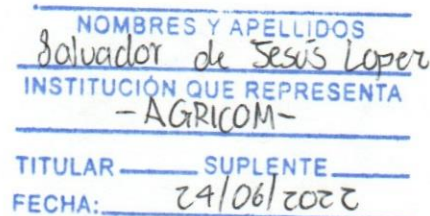 NOMBRES Y APELLIDOS
Salvador de Jesús Loper
INSTITUCIÓN QUE REPRESENTA
- AGRICOM -
TITULAR SUPLENTE
FECHA: 24/06/2022